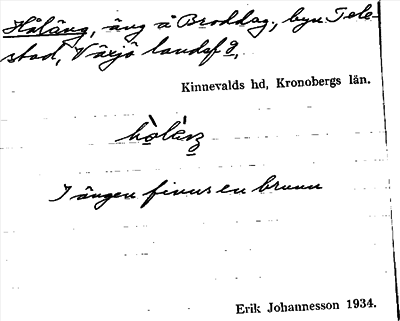 Håläng, äng å Broddag., byn Tele-
stad, Växjö landsf 9.
Kinnevalds hd, Kronobergs län.
I ängen finns en brunn
Erik Johannesson 1934.